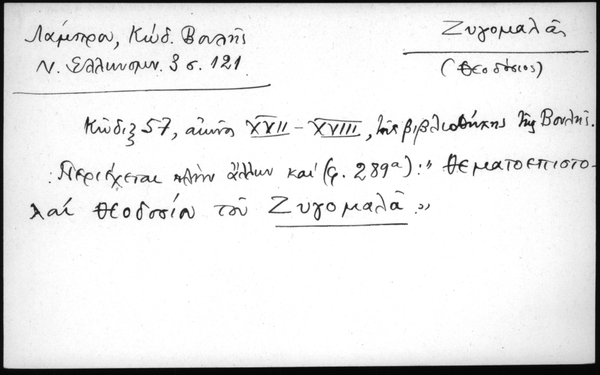 Λάμπρου, Κώδ. Βουλῆς
Ζυγομαλᾶς
Ν. Ἑλληνομν. 3 σ. 121.
(Θεοδόσιος)
Κῶδιξ 57, αἰῶνος XVII – XVIII, τῆς βιβλιοθήκης τῆς Βουλῆς.
Περιέχεται πλὴν ἄλλων καί (φ. 289α) : „ Θεματοεπιστο-
λαί Θεοδοσίου τοῦ Ζυγομαλᾶ „